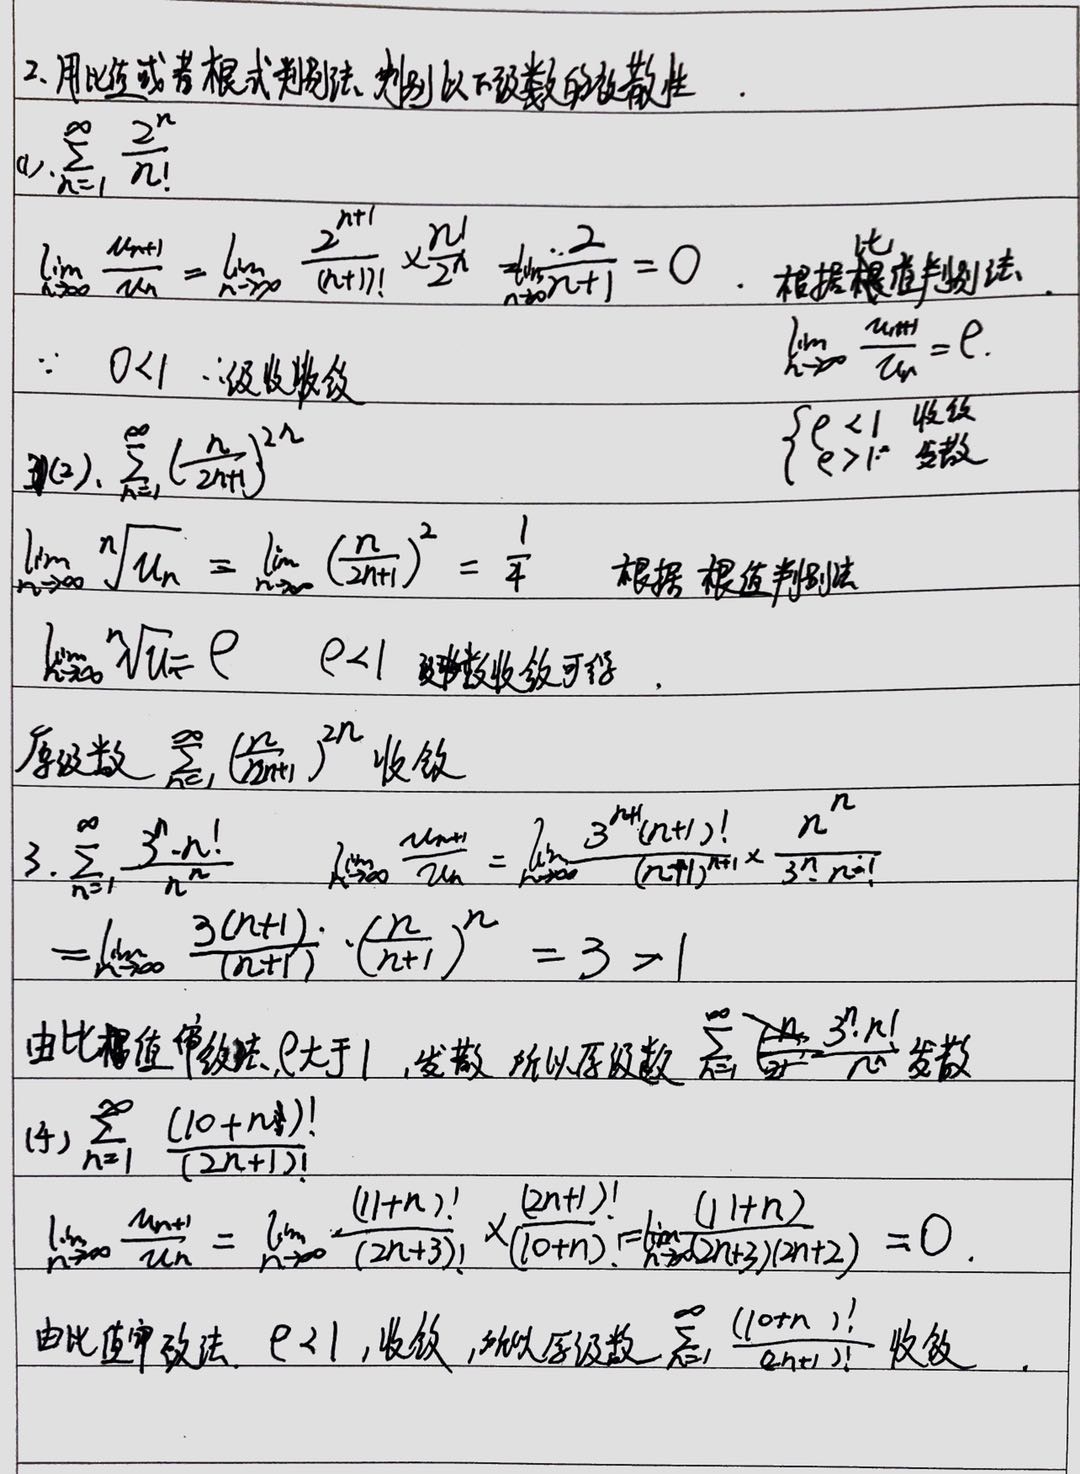 2、用比值或者根式判别法、判别以下级数的敛散性.
(1). \sum_{n=1}^{\infty} \frac{2^n}{n!}
\lim_{n→∞} \frac{u_{n+1}}{u_n} = \lim_{n→∞} \frac{2^{n+1}}{(n+1)!} × \frac{n!}{2^n} = \lim_{n→∞} \frac{2}{n+1} = 0. 根据比值判别法.
\lim_{n→∞} \frac{u_{n+1}}{u_n} = ρ.
∵ 0<1 ∴级收收敛
{ρ<1 收敛
ρ>1 发散
(2)、\sum_{n=1}^{∞} (\frac{n}{2n+1})^{2n}
\lim_{n→∞} \sqrt[n]{u_n} = \lim_{n→∞} (\frac{n}{2n+1})^2 = \frac{1}{4} 根据 根值判别法
\lim_{n→∞} \sqrt[n]{u_n} = ρ ρ<1 级数收敛可得.
原级数 \sum_{n=1}^{∞} (\frac{n}{2n+1})^{2n} 收敛
3. \sum_{n=1}^{∞} \frac{3^n·n!}{n^n} \lim_{n→∞} \frac{u_{n+1}}{u_n} = \lim_{n→∞} \frac{3^{n+1}(n+1)!}{(n+1)^{n+1}} × \frac{n^n}{3^n·n!}
= \lim_{n→∞} \frac{3(n+1)}{(n+1)} · (\frac{n}{n+1})^n = 3 > 1
由比值审敛法、ρ大于1,发散 所以原级数 \sum_{n=1}^{∞} \frac{3^n·n!}{n^n} 发散
(4) \sum_{n=1}^{∞} \frac{(10+n)!}{(2n+1)!}
\lim_{n→∞} \frac{u_{n+1}}{u_n} = \lim_{n→∞} \frac{(11+n)!}{(2n+3)!} × \frac{(2n+1)!}{(10+n)!} = \lim_{n→∞} \frac{(11+n)}{(2n+3)(2n+2)} = 0.
由比值审敛法. ρ<1,收敛,所以原级数 \sum_{n=1}^{∞} \frac{(10+n)!}{(2n+1)!} 收敛.